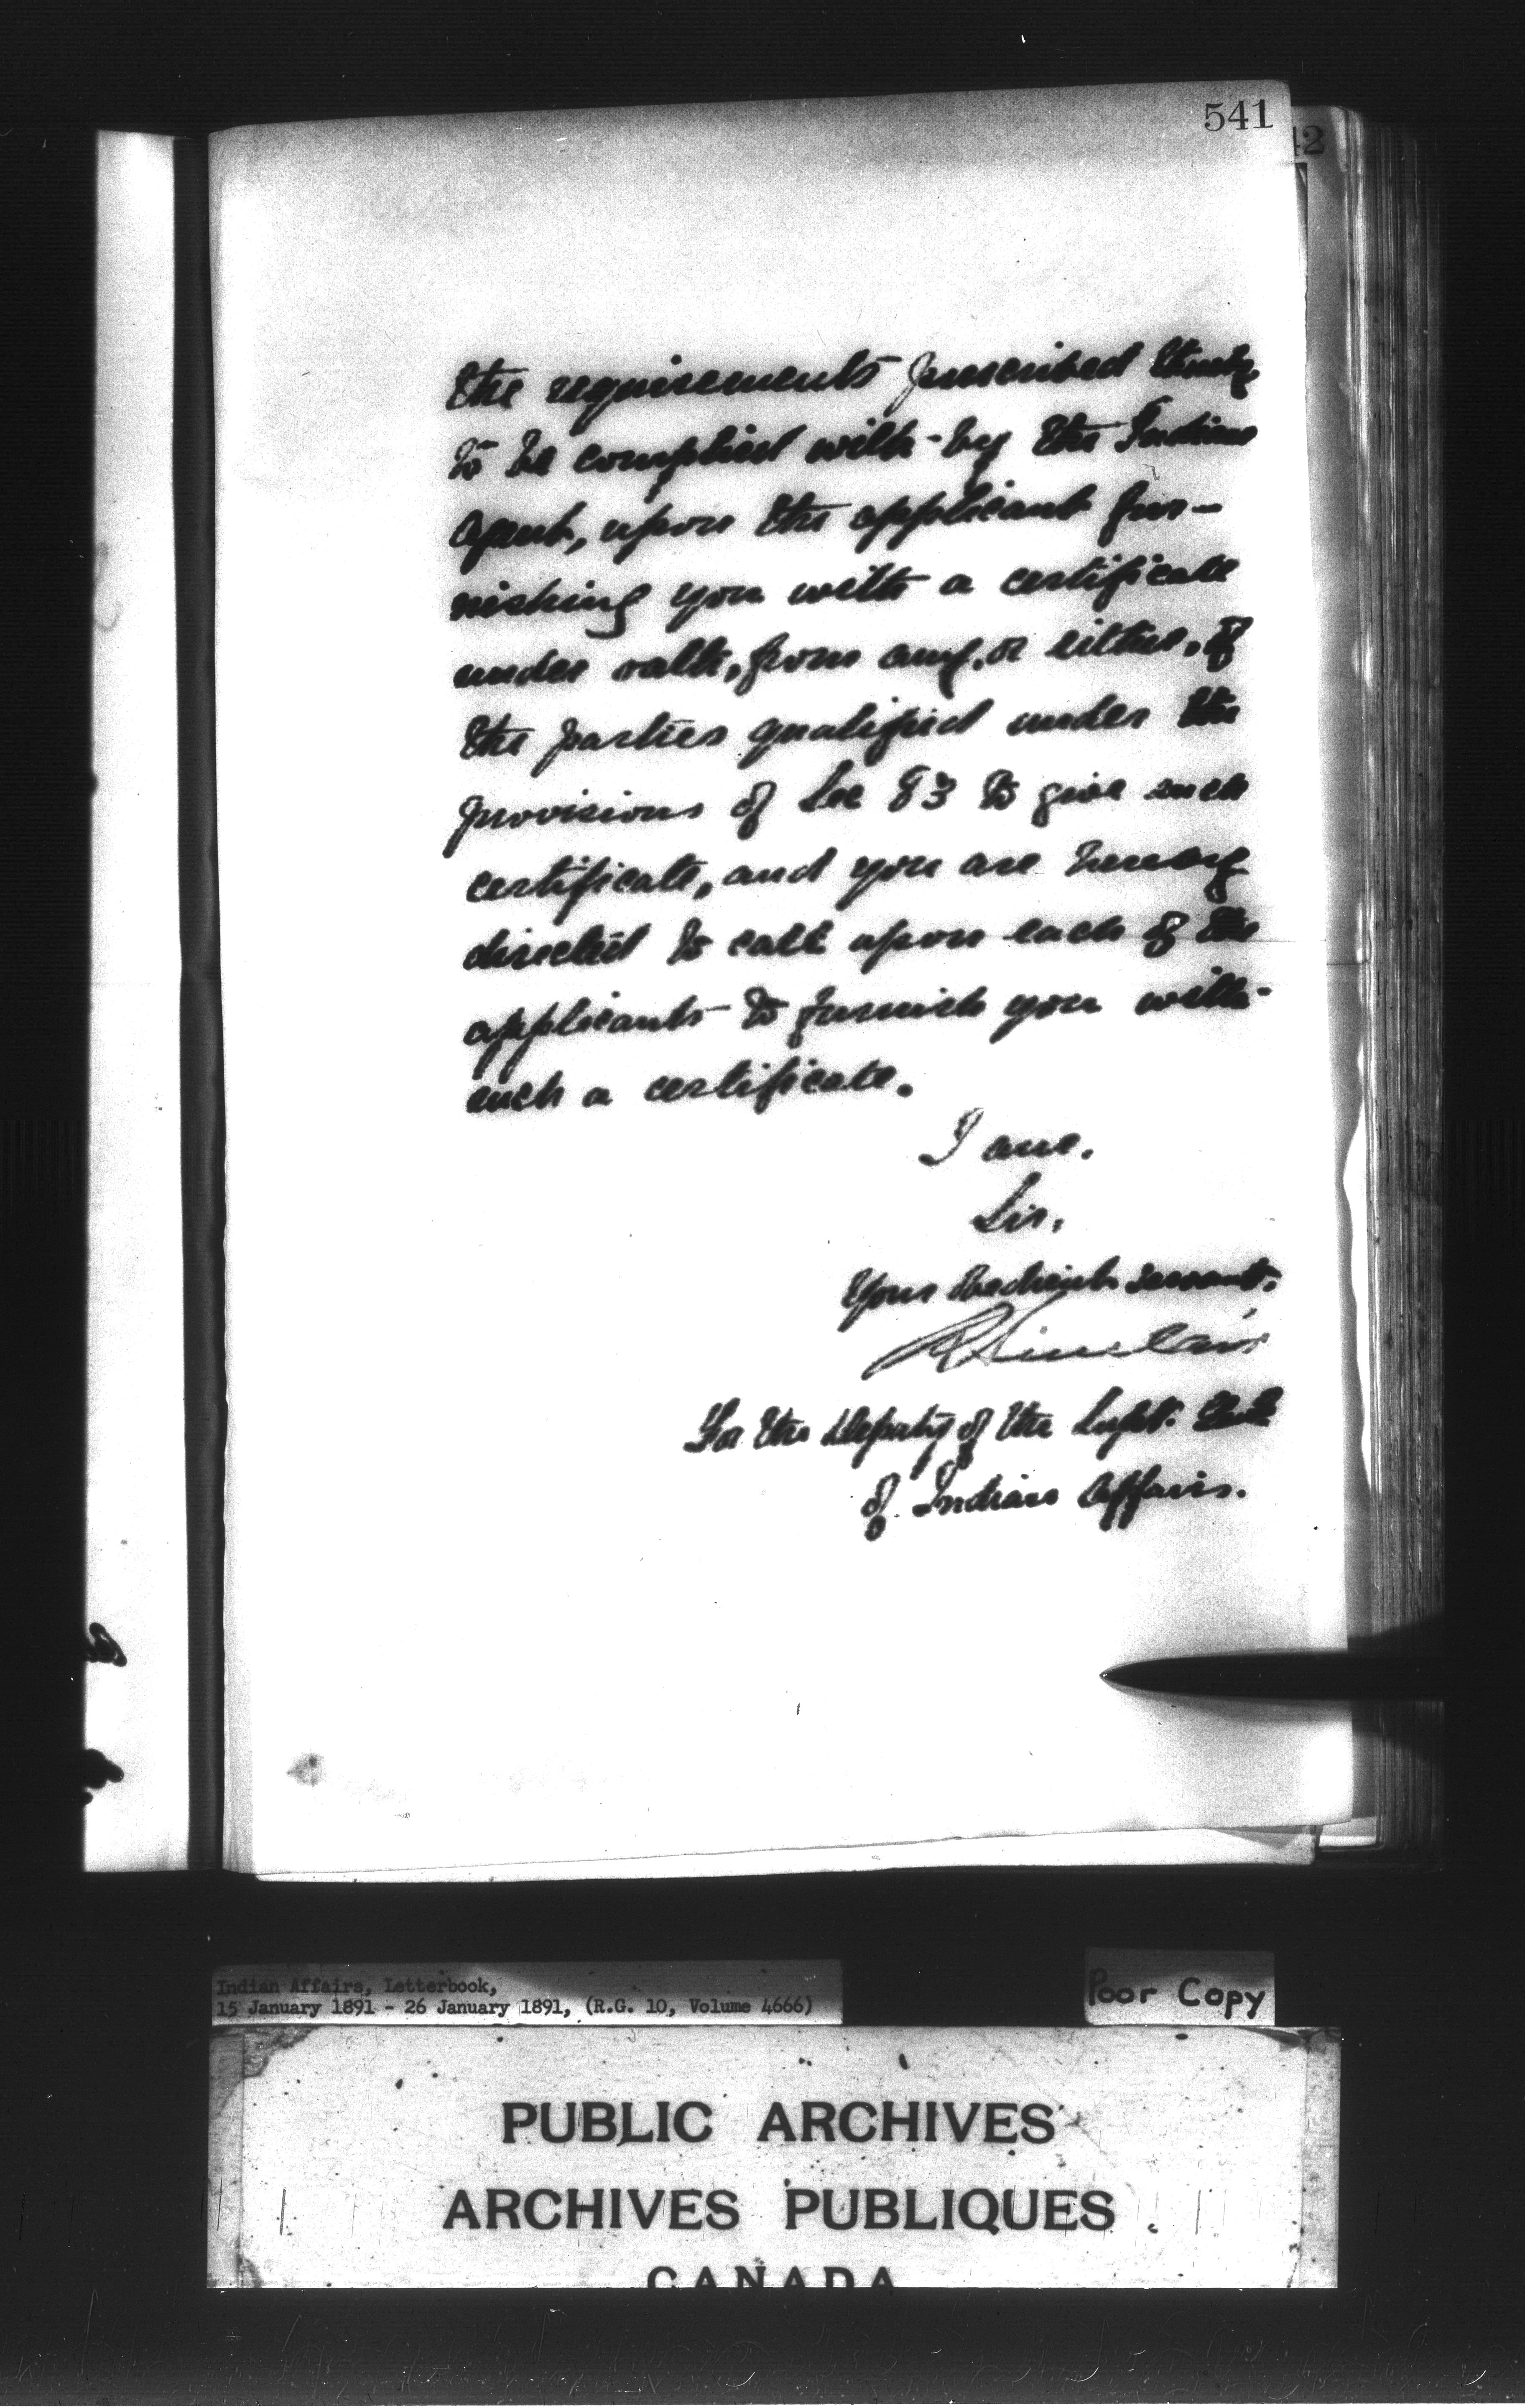 541
42
the requirements prescribed thereby
to be complied with by the Indian
Agent, upon the applicant fur-
nishing you with a certificate
under oath, from any, or either, of
the parties qualified under the
provisions of Sec 83 to give such
certificate, and you are hereby
directed to call upon each of the
applicants to furnish you with
such a certificate.
I am.
Sir.
Your obedient servant.
R Sinclair
For the Deputy of the Supt. Genl
of Indian Affairs.
Indian Affairs, Letterbook,
15 January 1891 - 26 January 1891, (R.G. 10, Volume 4666)
Poor Copy
PUBLIC ARCHIVES
ARCHIVES PUBLIQUES
CANADA